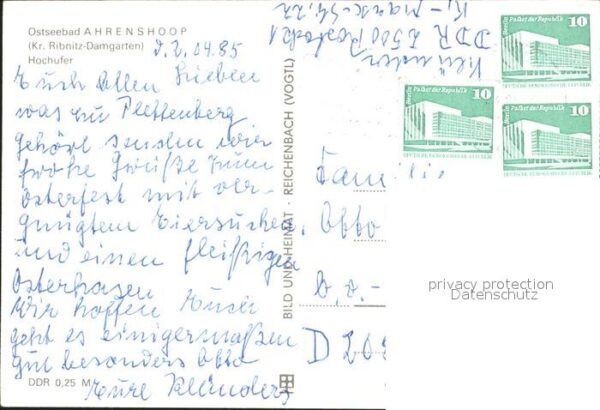 Ostseebad AHRENSHOOP
(Kr. Ribnitz-Damgarten)
Hochufer
d. 2. 04. 85
Euch Allen Lieben
was zu Plettenberg
gehört senden wir
frohe Grüße zum
Osterfest mit ver-
gnügtem Eiersuchen
und einen fleißigen
Osterhasen
Wir hoffen Euch
geht es einigermaßen
gut besonders Otto
Eure Klünders
DDR 0,25 M
BILD UND HEIMAT · REICHENBACH (VOGTL)
DDR 2500 Rostock 1
K.-Marx-Str. 22
Berlin Palast der Republik 10
DEUTSCHE DEMOKRATISCHE REPUBLIK
Berlin Palast der Republik 10
DEUTSCHE DEMOKRATISCHE REPUBLIK
Berlin Palast der Republik 10
DEUTSCHE DEMOKRATISCHE REPUBLIK
Famili
Otto
D
privacy protection
Datenschutz